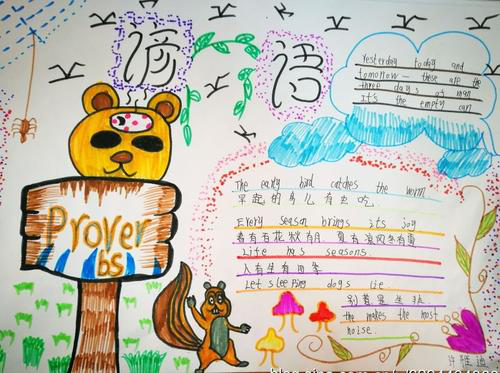 谚语
Yesterday today and
tomorrow — these are the
three days of man
It's the empty can
Proverbs
The early bird catches the worm
早起的鸟儿有虫吃
Every season brings its joy
春有百花秋有月 夏有凉风冬有雪
Life has seasons.
人有生有四季
Let sleeping dogs lie.
别惹是生非
the makes the most
noise.